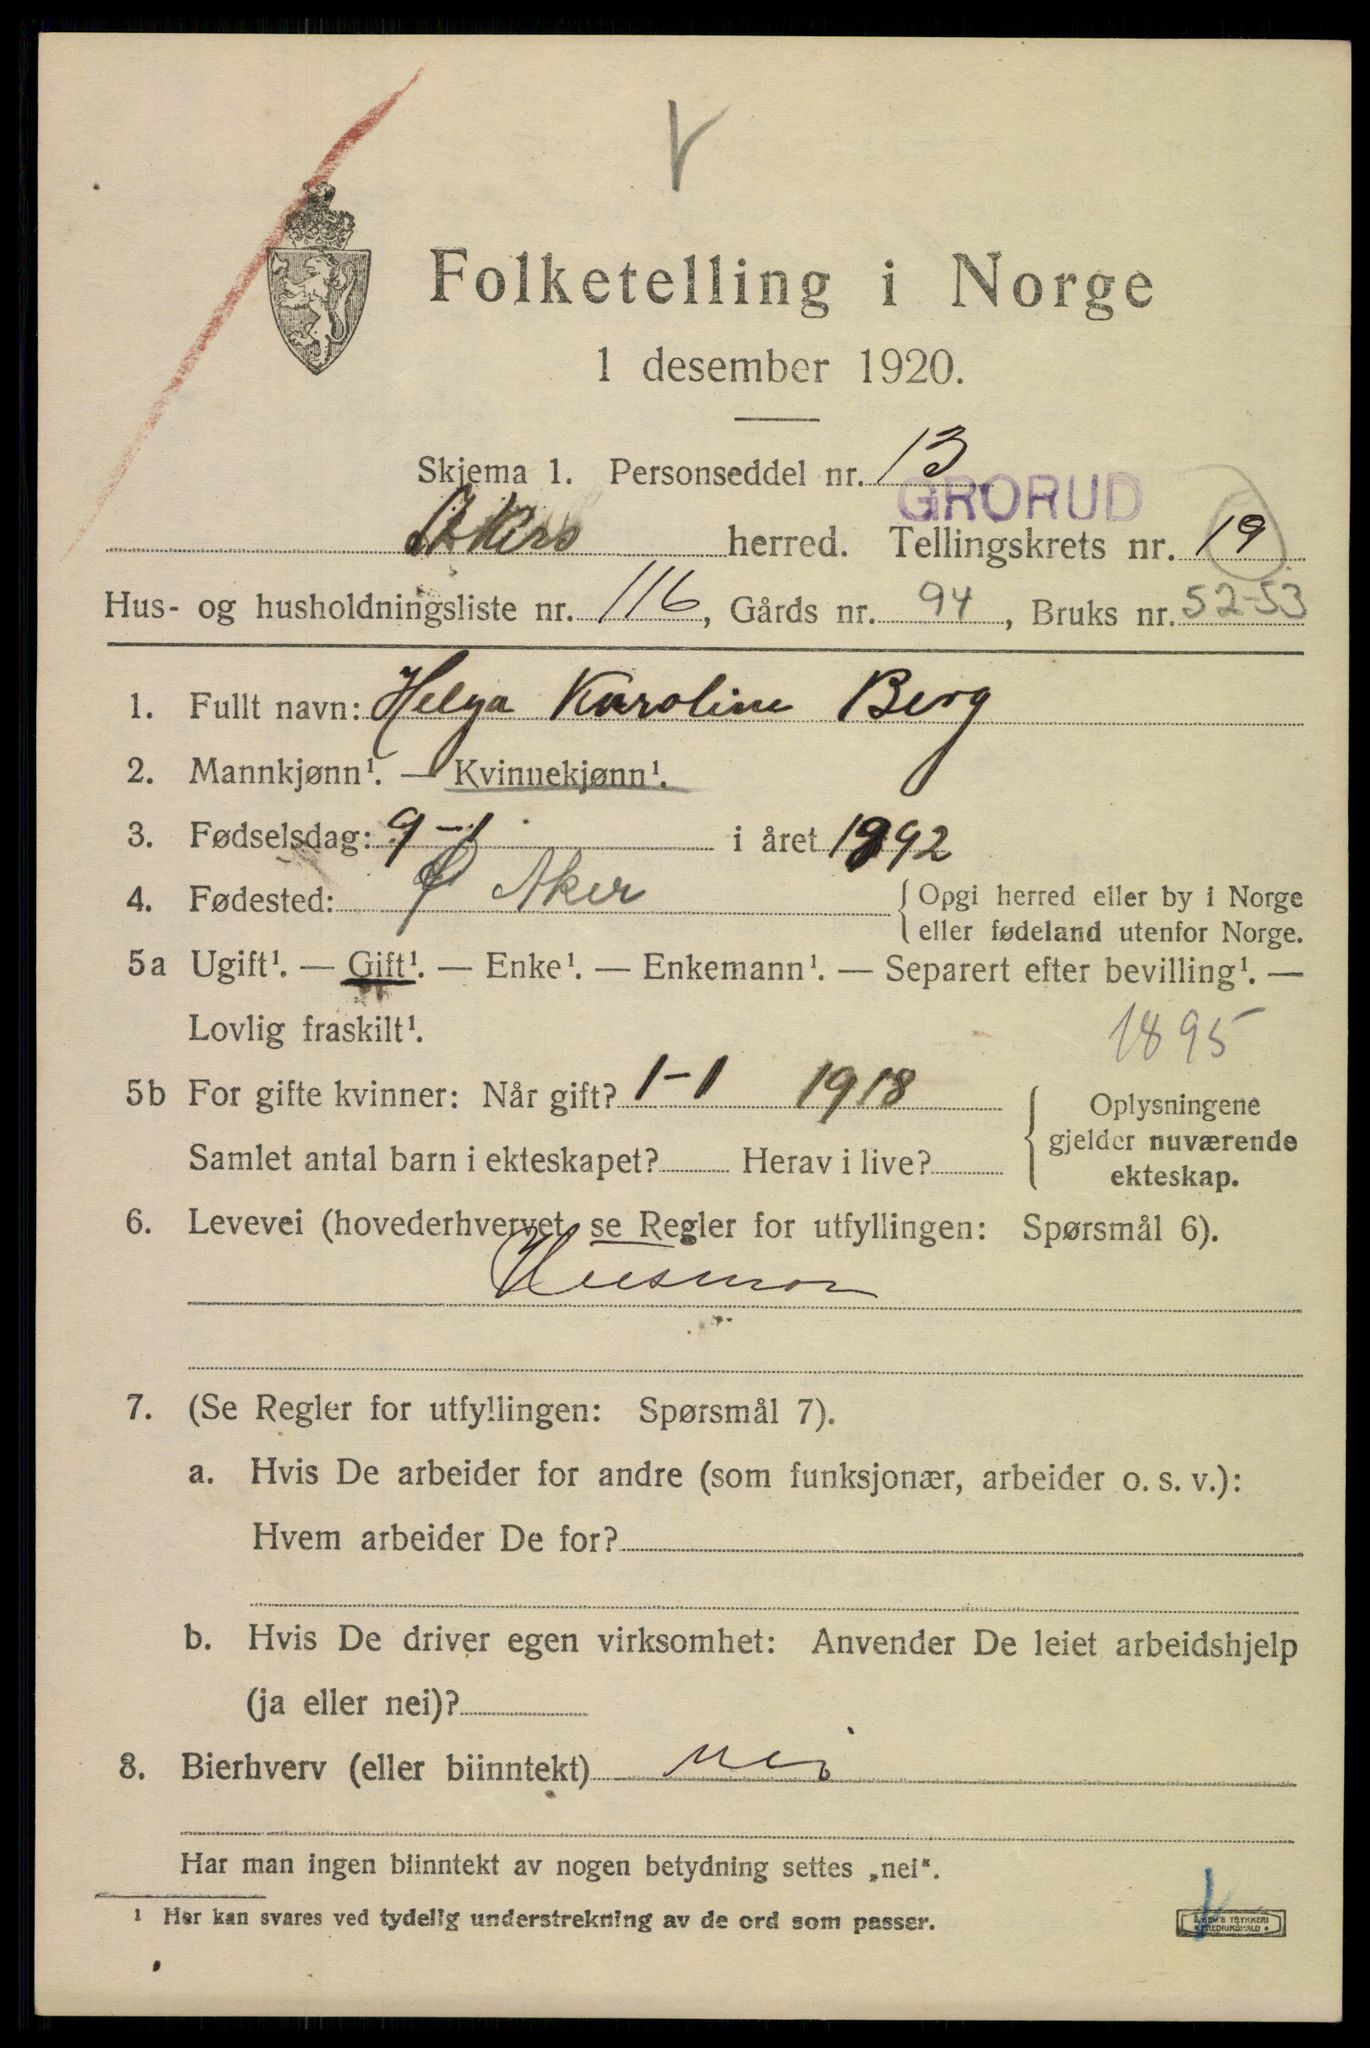 Folketelling i Norge
1 desember 1920.
Skjema 1. Personseddel nr. 13
GRORUD
Akers herred. Tellingskrets nr. 19
Hus- og husholdningsliste nr. 116, Gårds nr. 94, Bruks nr. 52-53
1. Fullt navn: Helga Karoline Berg
2. Mannkjønn¹. — Kvinnekjønn¹.
3. Fødselsdag: 9-1 i året 1892
4. Fødested: Ø Aker { Opgi herred eller by i Norge
eller fødeland utenfor Norge.
5a Ugift¹. — Gift¹. — Enke¹. — Enkemann¹. — Separert efter bevilling¹. —
Lovlig fraskilt¹. 1895
5b For gifte kvinner: Når gift? 1-1 1918
Samlet antal barn i ekteskapet? Herav i live?
Oplysningene
gjelder nuværende
ekteskap.
6. Levevei (hovederhvervet se Regler for utfyllingen: Spørsmål 6).
Husmor
7. (Se Regler for utfyllingen: Spørsmål 7).
a. Hvis De arbeider for andre (som funksjonær, arbeider o. s. v.):
Hvem arbeider De for?
b. Hvis De driver egen virksomhet: Anvender De leiet arbeidshjelp
(ja eller nei)?
8. Bierhverv (eller biinntekt) nei
Har man ingen biinntekt av nogen betydning settes „nei“.
¹ Her kan svares ved tydelig understrekning av de ord som passer.
TRYKKERI
FREDRIKSHALD